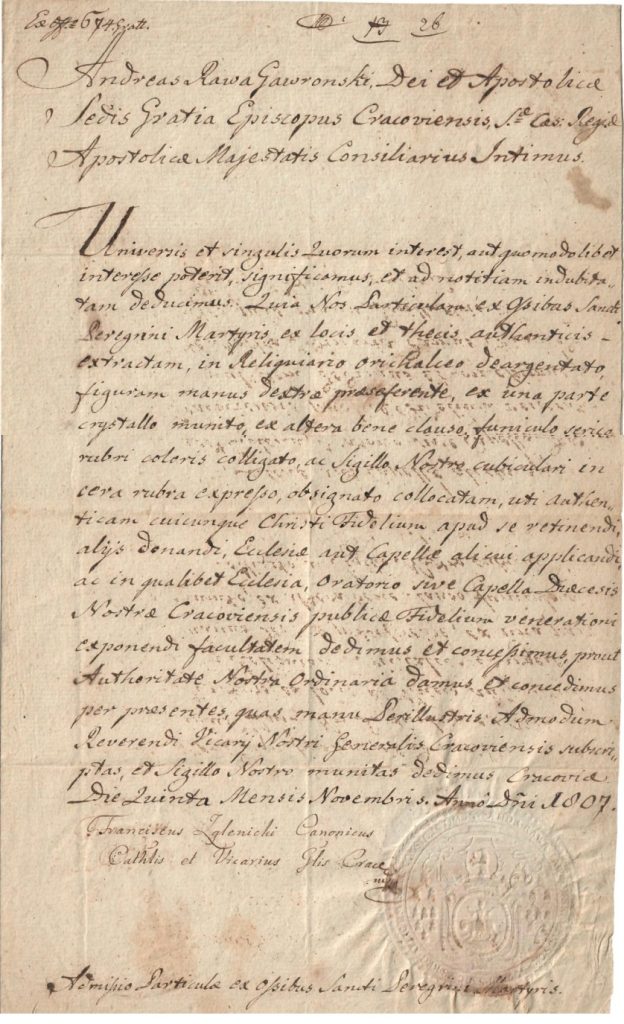 Ex offo 674 gratt.
No 13 26
Andreas Rawa Gawronski, Dei et Apostolicæ
Sedis Gratia Episcopus Cracoviensis, S.æ Cæs: Regiæ
Apostolicæ Majestatis Consiliarius Intimus.
Universis et singulis Quorum interest, aut quomodolibet
interesse poterit, significamus, et ad notitiam indubita-
tam deducimus. Quia Nos Particulam ex Ossibus Sancti
Peregrini Martyris ex locis et thecis authenticis
extractam, in Reliquiario orichalceo deargentato,
figuram manus dextræ præseferente, ex una parte
crystallo munito, ex altera bene clauso, funiculo serico
rubri coloris colligato ac Sigillo Nostro cubiculari in
cera rubra expresso, obsignato collocatam, uti authen-
ticam cuicunque Christi Fidelium apud se retinendi,
alijs donandi, Ecclesiæ aut Capellæ alicui applicandi,
ac in qualibet Ecclesia, Oratorio sive Capella Diæcesis
Nostræ Cracoviensis publicæ Fidelium venerationi
exponendi facultatem dedimus et concessimus, prout
Authoritate Nostra Ordinaria damus et concedimus
per præsentes, quas manu Perillustris Admodum
Reverendi Vicarij Nostri Generalis Cracoviensis subscri-
ptas, et Sigillo Nostro munitas dedimus Cracoviæ
Die Quinta Mensis Novembris. Anno Dñi 1807.
Franciscus Zglenicki Canonicus
Cathlis et Vicarius Glis Cracc
Admissio Particulæ ex Ossibus Sancti Peregrini Martyris.